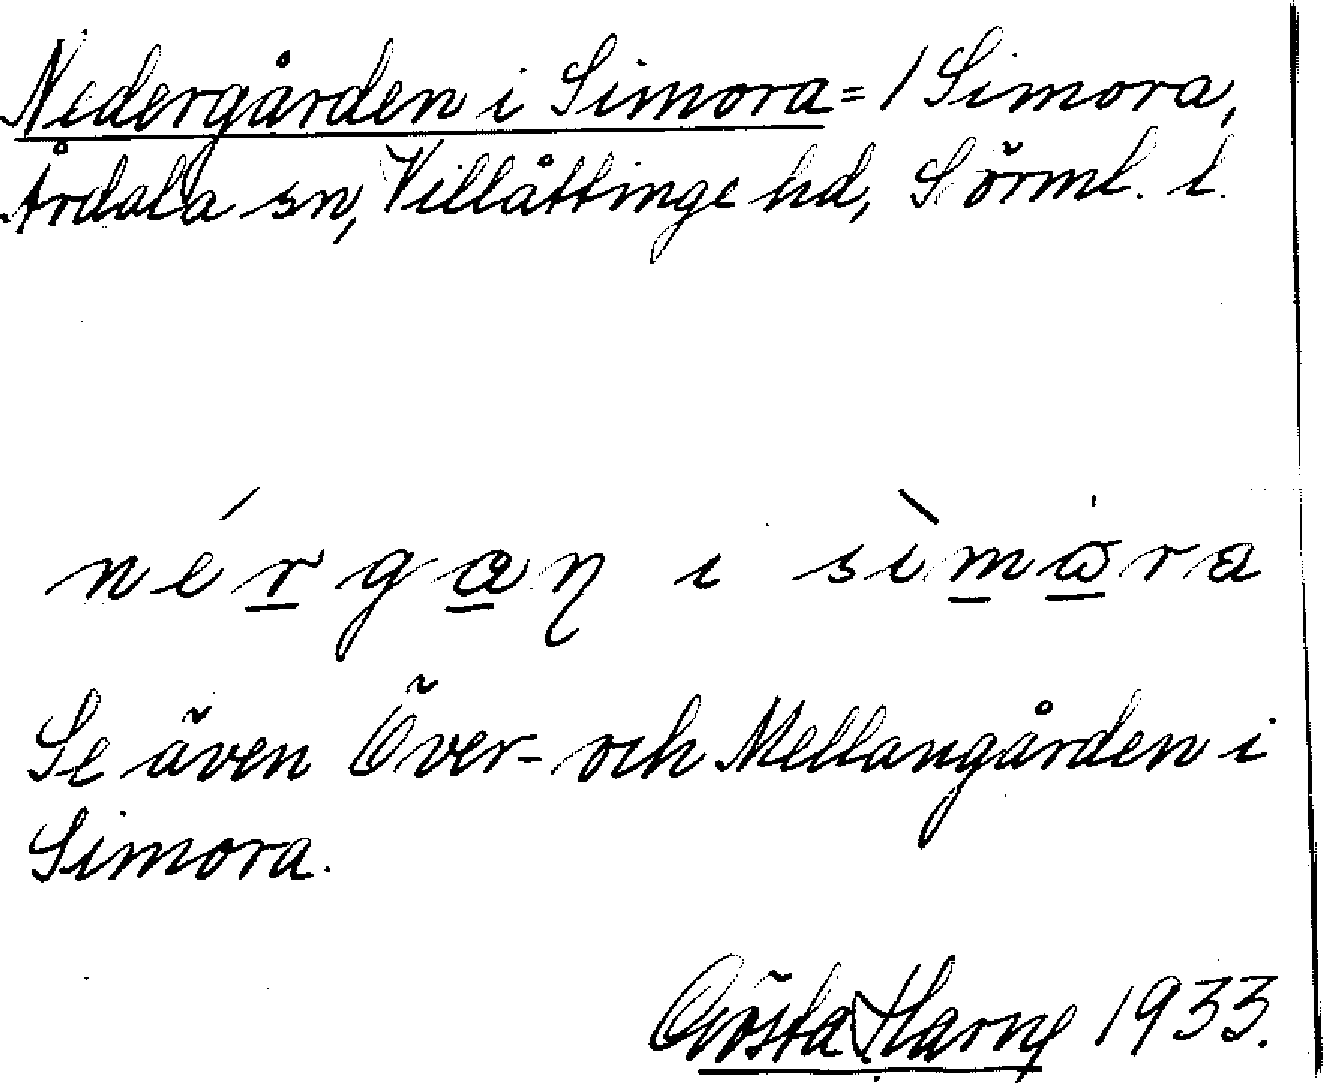 Nedergården i Simora = 1 Simora,
Årdala sn, Villåttinge hd, Sörml. l.
nérgan i sìmåra
Se även Över- och Mellangården i
Simora.
Gösta 1933.